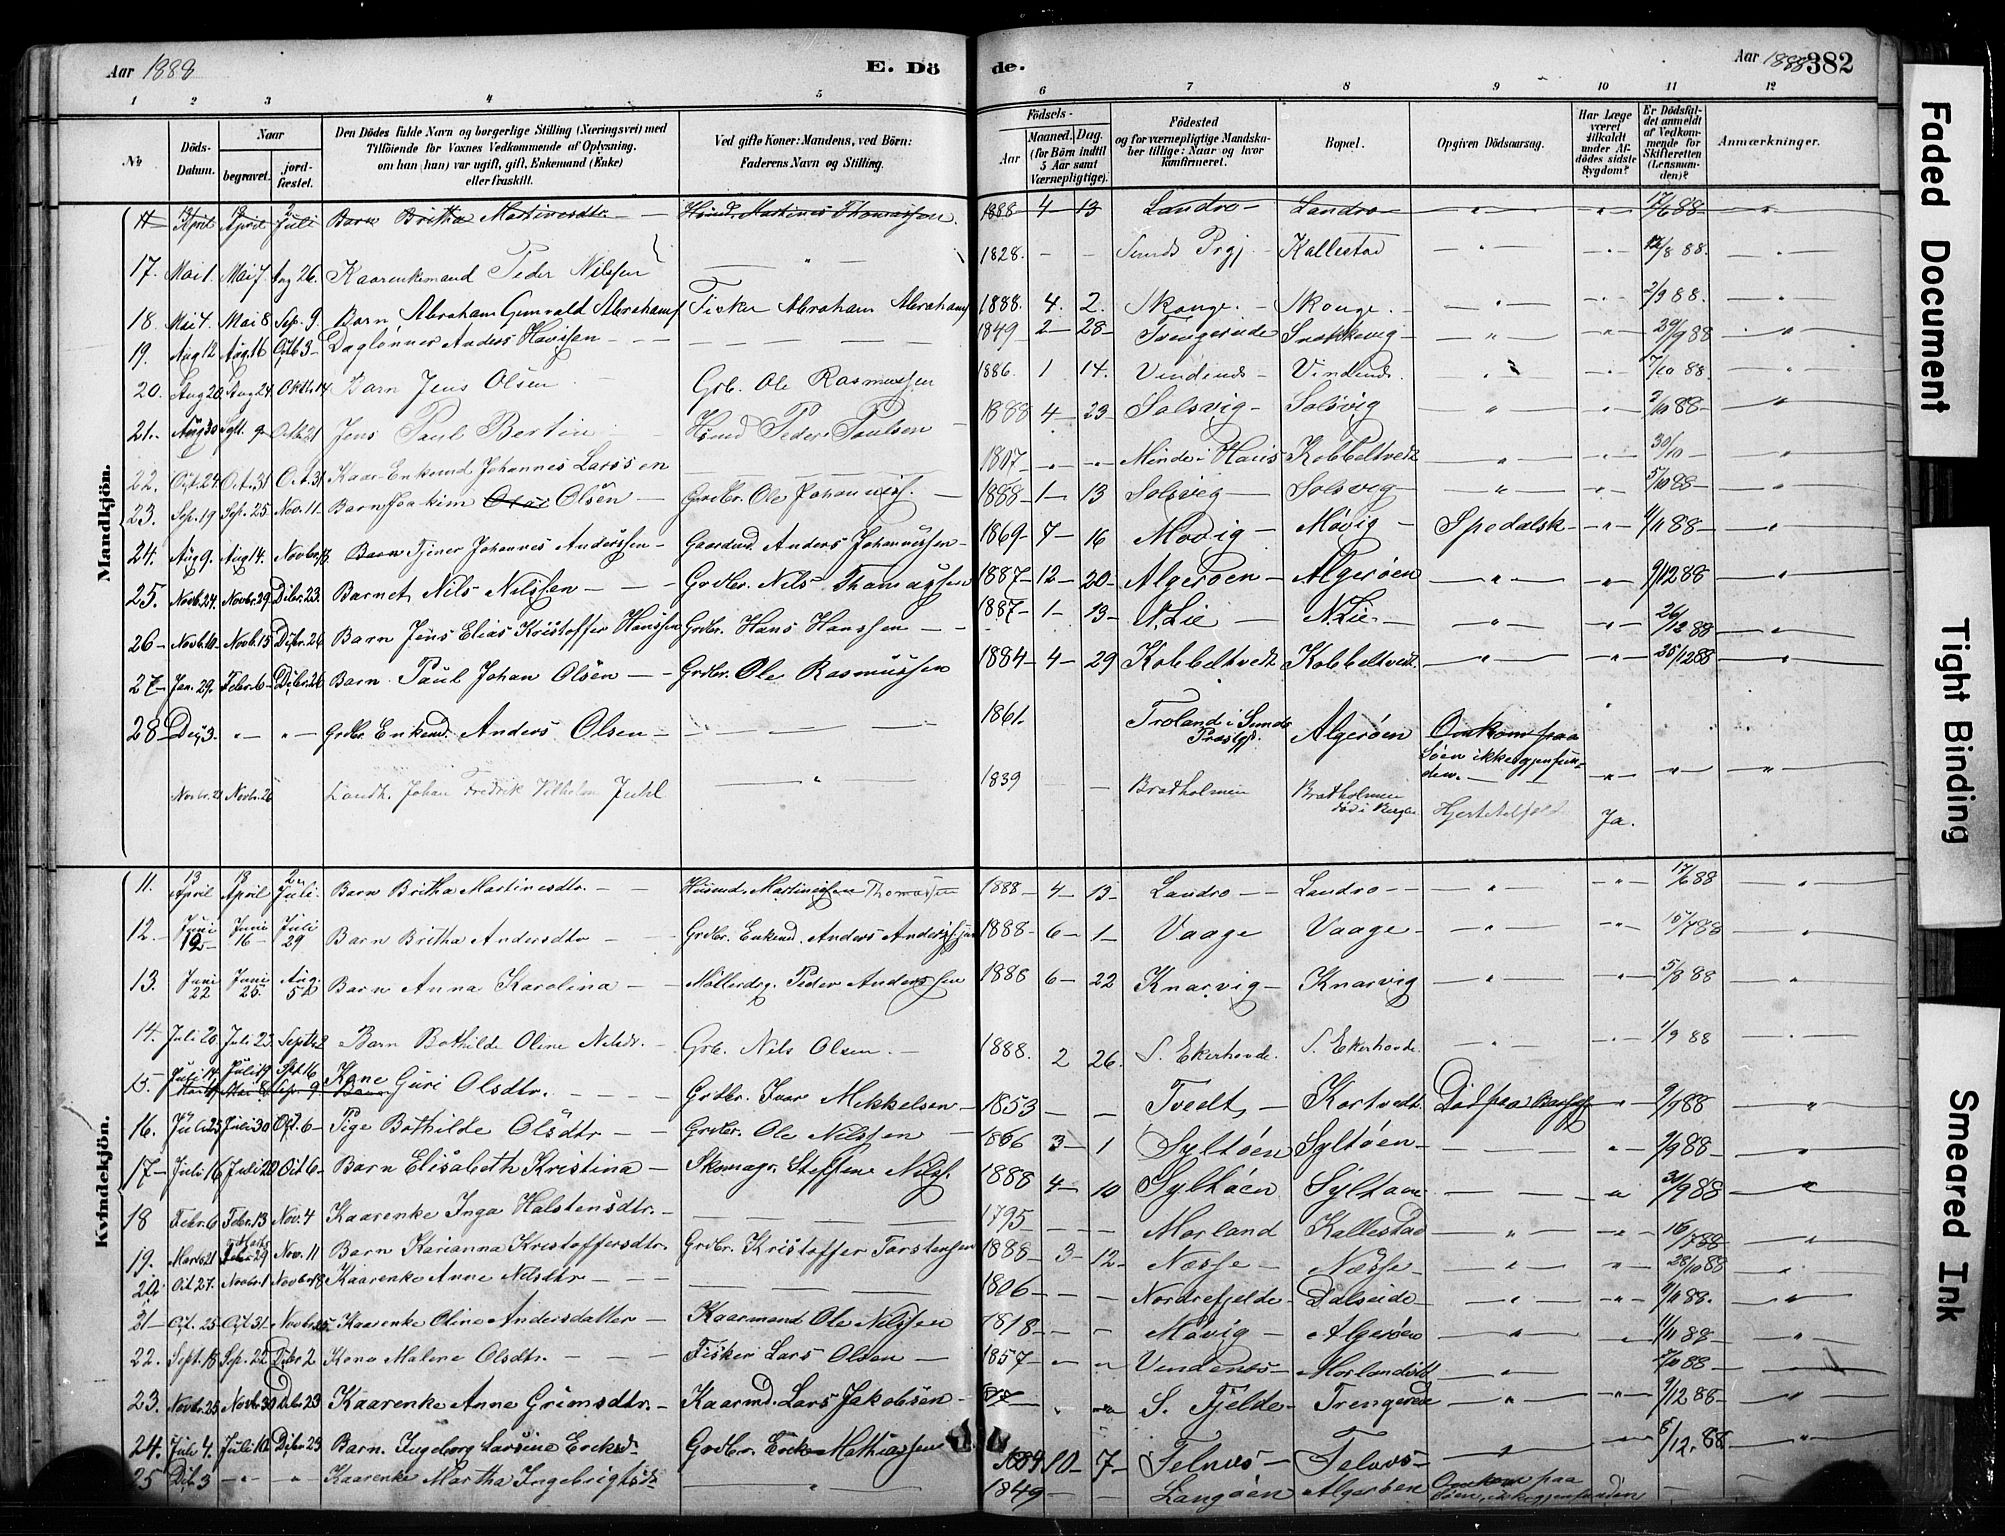 Aar 1888
E. Dö
de.
Aar 1888
382
1 2 3 4 5 6 7 8 9 10 11 12
No
Döds-Datum.
Naar
begravet.
jord-fæstet.
Den Dödes fulde Navn og borgerlige Stilling (Næringsvei) med
Tilföiende for Voxnes Vedkommende af Oplysning,
om han (hun) var ugift, gift, Enkemand (Enke)
eller fraskilt.
Ved gifte Koner: Mandens, ved Börn:
Faderens Navn og Stilling.
Födsels-
Aar
Maaned.
Dag.
(for Börn indtil
5 Aar samt
Værnepligtige).
Födested
og for værnepligtige Mandska-
ber tillige: Naar og hvor
konfirmeret.
Bopæl.
Opgiven Dödsaarsag.
Har Læge
været
tilkaldt
under Af-
dödes sidste
Sygdom?
Er Dödsfal-
det anmeldt
af Vedkom-
mende for
Skifteretten
(Lensman-
den)?
Anmærkninger.
Mandkjön.
11 13 April 18 April 2 Juli Barn Britha Martinesdtr Husmd. Martines Thomassen 1888 4 13 Landro Landro " " 17/6 88 "
17. Mai 1. Mai 7 Aug 26. Kaarenkemand Peder Nilssen " 1828. Sunds Prgj. Kallestad " 12/8 88. "
18. Mai 4. Mai 8 Sep. 9 Barn Abraham Gunvald Abrahams Fisker Abraham Abrahams 1888. 4. 2. Skonge. Skonge. " 2/9 88. "
19. Aug 12 Aug 16 Octb 3 Daglönner Anders Havsen 1849 2 28 Trengereide Snekkevig " " 29/9 88 "
20. Aug 20. Aug 24. Oktbr 14 Barn Jens Olsen Grb. Ole Rasmussen 1886. 1 14. Vindenes Vindenes. " 7/10 88. "
21. Aug 30 Sept. 9 Octb 21 Jens Paul Bertin Hsmd Peder Paulsen 1888 4 23 Solsvig Solsvig " " 3/10 88 "
22. Oct. 24 Oct. 31 Oct. 31 Kaar Enkemd Johannes Larssen 1807 Minde i Haus Kobbeltvedt " 30/10 "
23. Sep. 19 Sep. 25 Nov. 11. Barn Joakim Olsen Grdbr. Ole Johanness. 1888 1 13 Solsvig Solsvig " " 5/10 88 "
24. Aug 9. Aug 14. Novbr 18. Barn Tjener Johannes Anderssen Gaardmd Anders Johannessen 1869 7 16 Movig Móvig Spedalsk " 4/11 88 "
25. Novb. 24 Novbr. 29 Dcbr. 23. Barnet Nils Nilssen Grdbr. Nils Thomassen 1887 12 20 Algeröen Algeröen " " 9/12 88 "
26 Novb. 10 Novb. 15 Debr. 26 Barn Jens Elias Kristoffer Hanssen Grdbr. Hans Hanssen 1887 1 13 N. Lie N. Lie " " 26/12 88 "
27 Jan. 29. Febr. 6 Debr. 26 Barn Paul Johan Olsen Grdbr. Ole Rasmussen 1884 4 29 Kobbeltvedt Kobbeltvedt. " " 25/12 88 "
28 Dec. 3. " " Grdbr. Enkemd Anders Olsen 1861. Troland i Sunds Præstgj. Algeröen Omkom paa
Söen ikke gjenfun-
den. " " "
Novbr. 21 Novbr. 26 Landh. Johan Fredrik Vilhelm Juhl " 1839 Bratholmen Bratholmen
död i Bergen Hjertefeil Ja.
Kvindekjön.
11. 13 April 18 April 2 Juli Barn Britha Martinesdtr Husmd. Martinessen Thomassen 1888 4 13 Landro Landro " " 17/6 88 "
12. Juni 12 Juni 16 Juli 29 Barn Britha Andersdtr Grdbr. Enkmd. Anders Anderssen 1888 6 1 Vaage Vaage " " 15/7 88 "
13. Juni 22 Juni 25. Aug. 5 Barn Anna Karolina Möllerdrg. Peder Anderssen 1888 6 22 Knarvig Knarvig " " 5/8 88 "
14. Juli 20. Juli 23. Septb 2 Barn Bothilde Oline Nilsdr. Grb. Nils Olsen. 1888. 2 26. S. Ekerhovde. S. Ekerhovde. " 1/9 88 "
15. Juli 14 Juli 19 Spt. 16 Kone Guri Olsdtr. Grdbr. Ivar Mikkelsen 1853 Tvedt Kortvedt Död paa Barselseng " 9/9 88 "
16. Juli 25 Juli 30 Oct. 6 Pige Bothilde Olsdtr Grdbr. Ole Nilssen 1866 3 1 Syltöen Syltöen " 9/9 88 "
17 Juli 16 Juli 20 Oct 6 Barn Elisabeth Kristina Skomagr. Steffen Nils. 1888 4 10 Syltöen Syltöen " 31/9 88 "
18 Febr. 6 Febr. 13 Nov. 4 Kaarenke Inga Halstensdtr. 1795 Morland Kallestad " " 16/7 88 "
19. Marts 21 29 Nov. 11 Barn Karianna Kristoffersdtr. Grdbr. Kristoffer Torstensen 1888 3 12 Næsse Næsse " " 28/10 88 "
20 Oct 27. Novbr. 1 Novbr 18. Kaarenke Anne Nilsdtr 1806 Nordrefjelde Dalseide " " 4/11 88. "
21 Oct. 25 Oct. 31 Novbr. 25 Kaarenke Oline Andersdatter Kaarmand Ole Nilssen 1818 Movig Algeröen " 11/11 88 "
22. Sept. 18 Sep. 22 Debr 2 Kone Malene Olsdtr. Fisker Lars Olsen 1857 Vindenes Morlandstö " " 7/10 88 "
23. Novbr. 25 Novbr 30 Dcbr. 23 Kaarenke Anne Grimsdtr. Kaarmd. Lars Jakobsen S. Fjelde Trengereid " " 9/12 88 "
24. Juli 4. Juli 10 Debr. 23 Barn. Ingeborg Larsine Eriksd. Grdbr. Erik Mathiassen 1884 10 7 Telnæs Telnæs " " 8/12. 88 "
25 Dcb. 3 " " Kaarenke Martha Ingebrigtsdr " 1849 Langöen Algeröen Omkom paa
Söen, ikke gjenfunden
Faded Document
Tight Binding
Smeared Ink